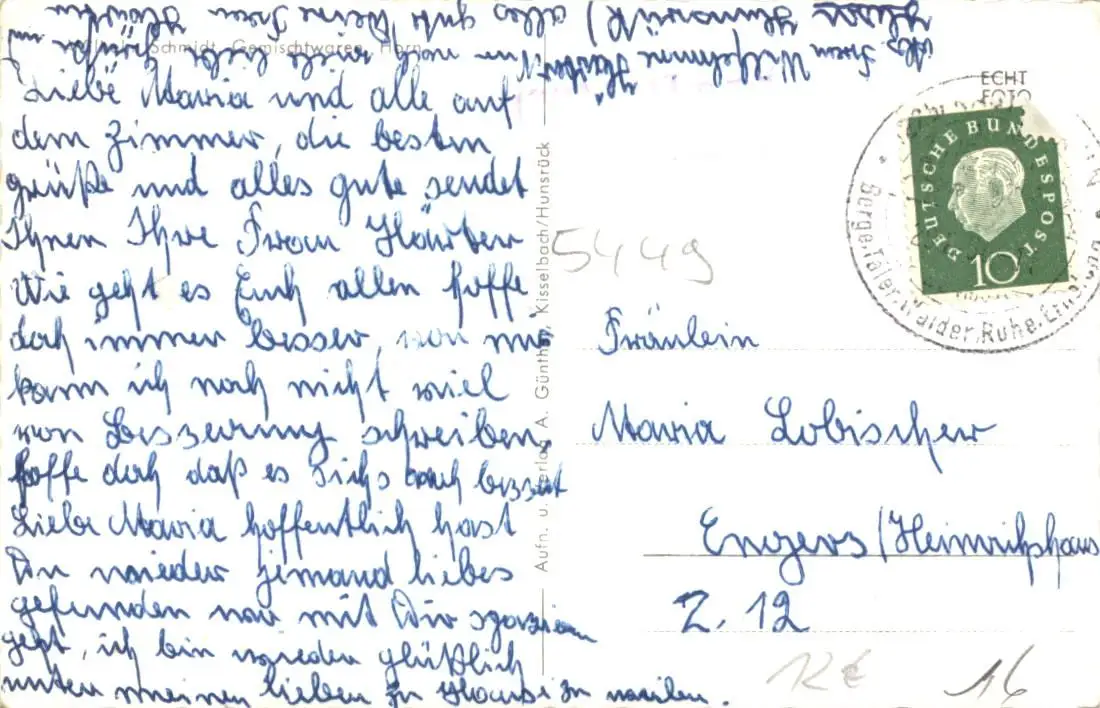 Liebe Maria und alle auf
dem Zimmer, die besten
grüße und alles gute sendet
Ihnen Ihre Frau Härter
Wie geht es Euch allen hoffe
doch immer besser, von mir
kann ich noch nicht viel
von Besserung schreiben,
hoffe doch daß es sichs auch bessert
Liebe Maria hoffentlich hast
Du wieder jemand liebes
gefunden wo mit Dir spazieren
geht, ich bin wieder glücklich
unter meinen lieben zu Hause zu weilen.
noch viele liebe Grüße und
alles gute Deine Frau
Frau Wilhelmine
Hunsrück
Schmidt, Gemischtwaren, Horn
Aufn. u. Verlag A. Günther, Kisselbach/Hunsrück
ECHT
FOTO
DEUTSCHE BUNDESPOST
10
Berge, Täler, Wälder, Ruhe,
5449
Fräulein
Maria Lobischer
Engers/Heinrichshaus
Z. 12
12€
16